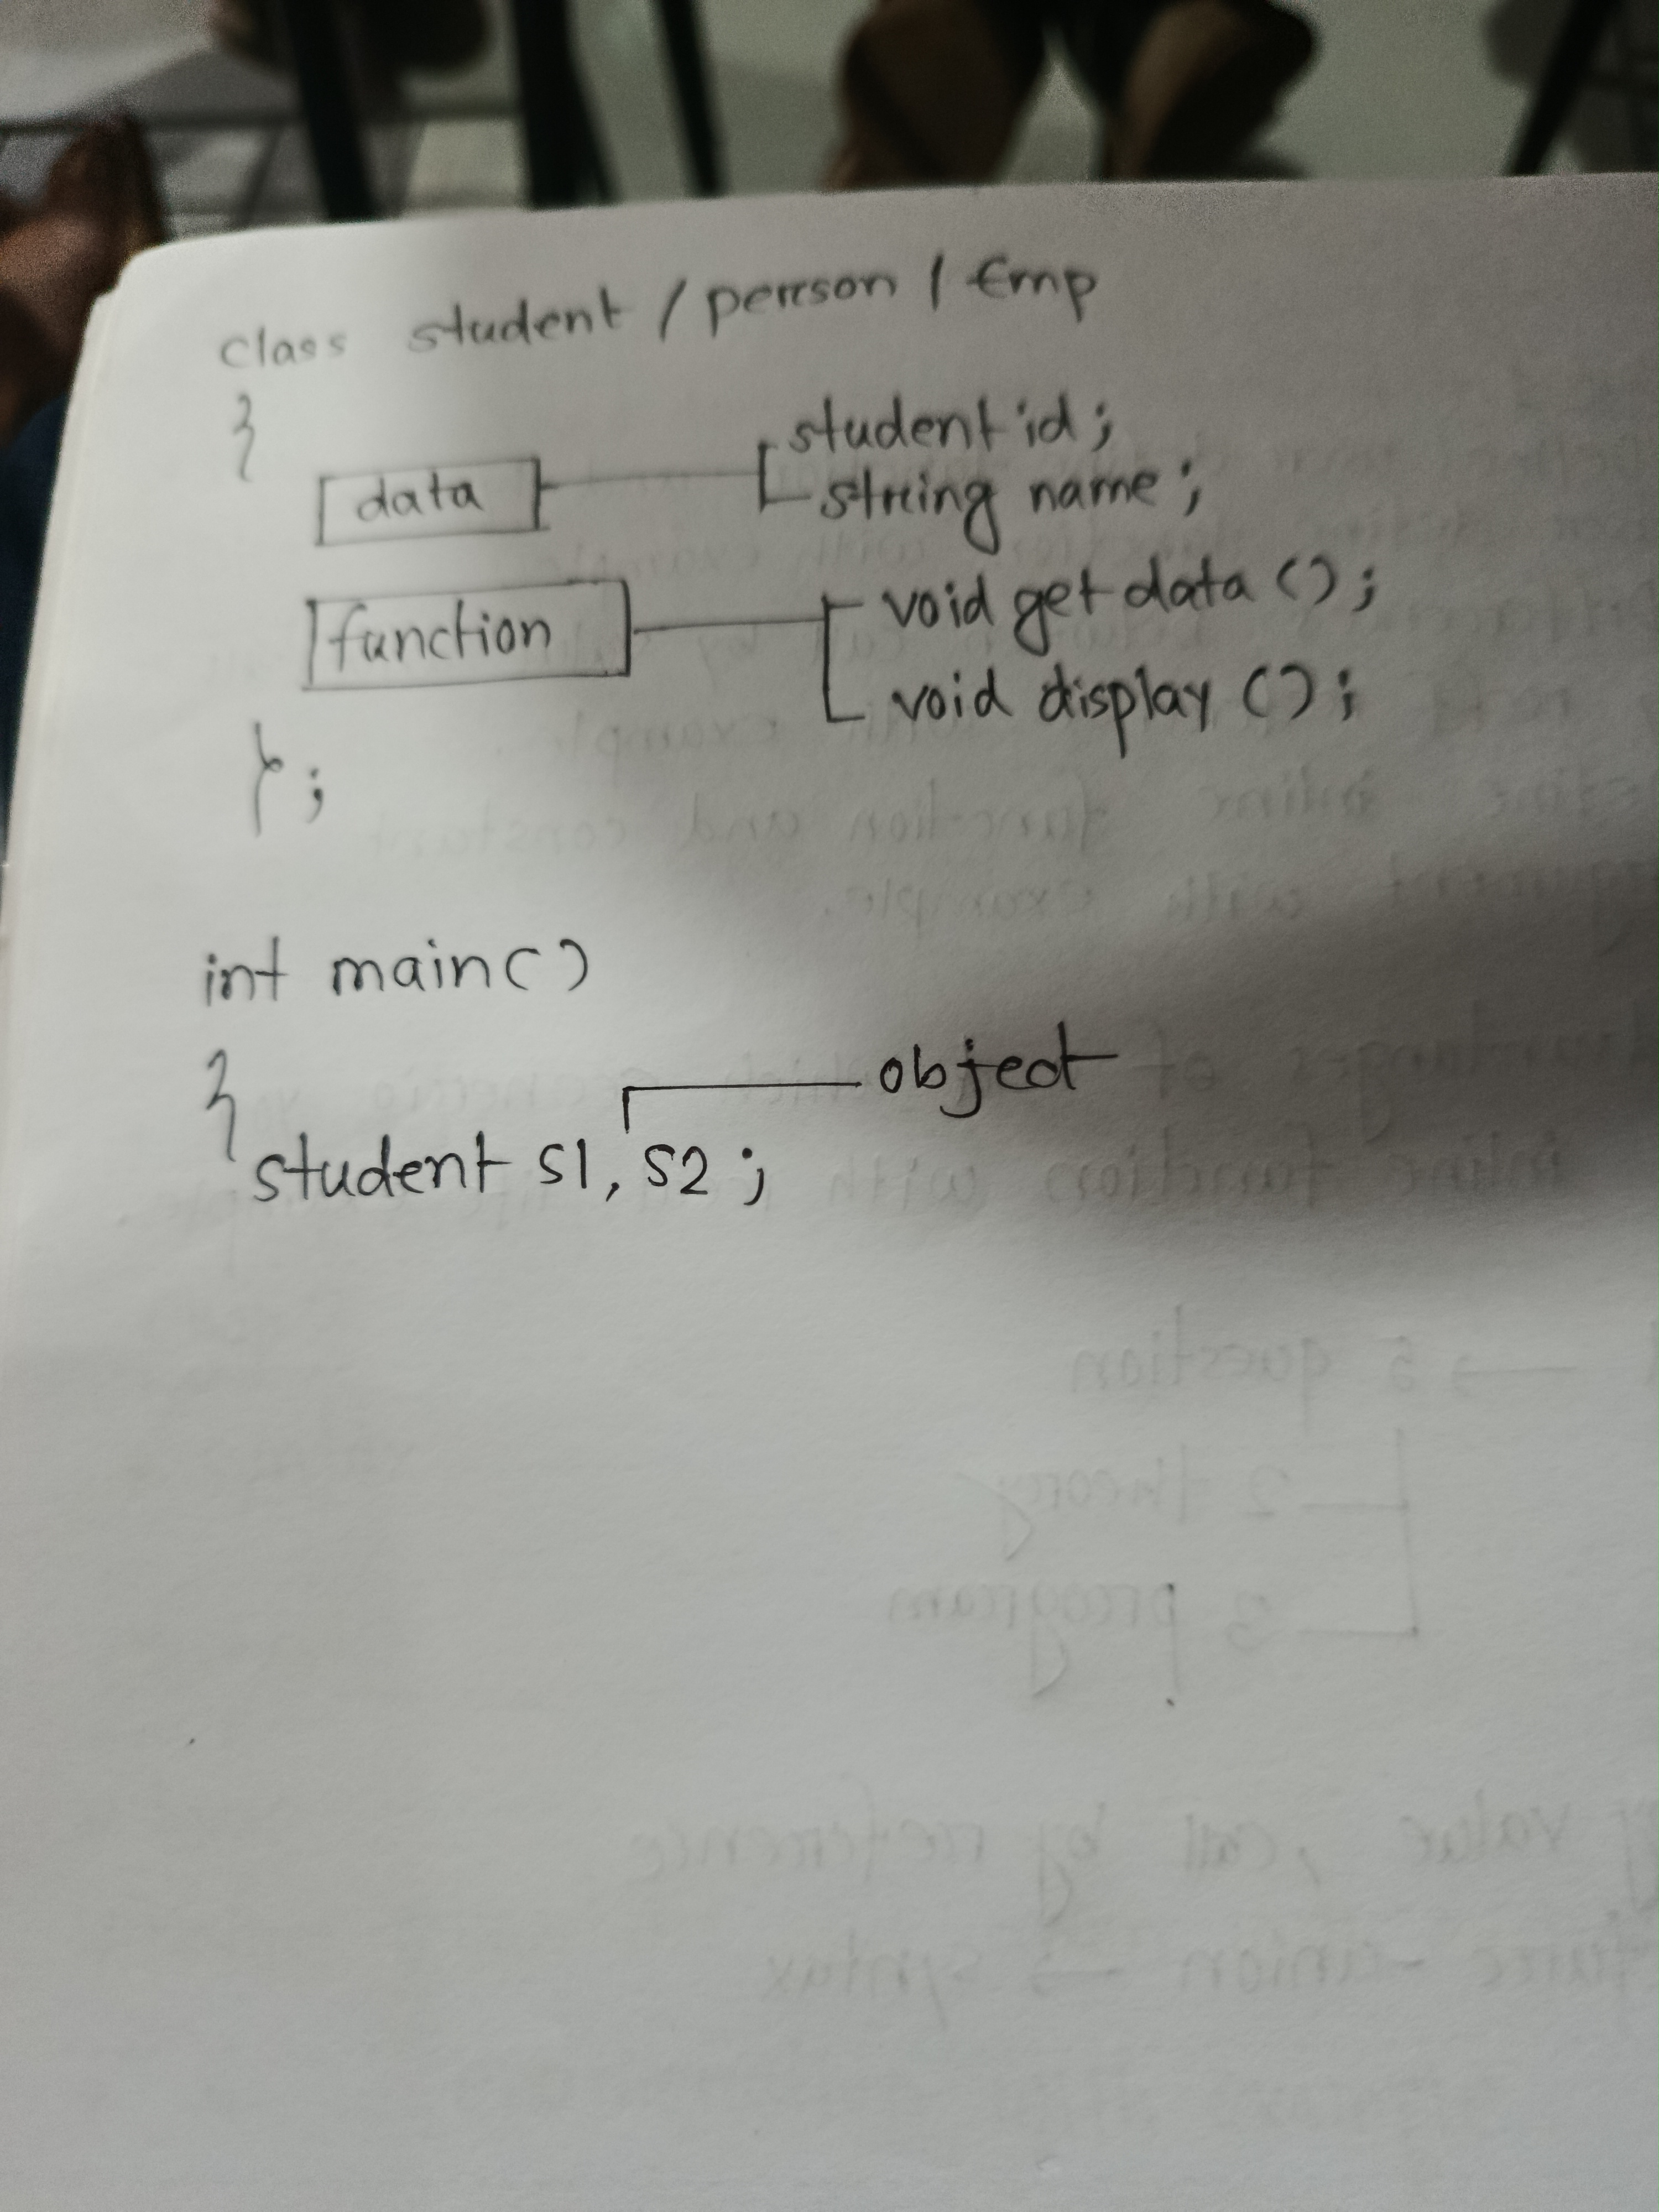 class student / person / Emp
{
data
student id;
string name;
function
void getdata();
void display();
};
int main()
{
object
student s1, s2;